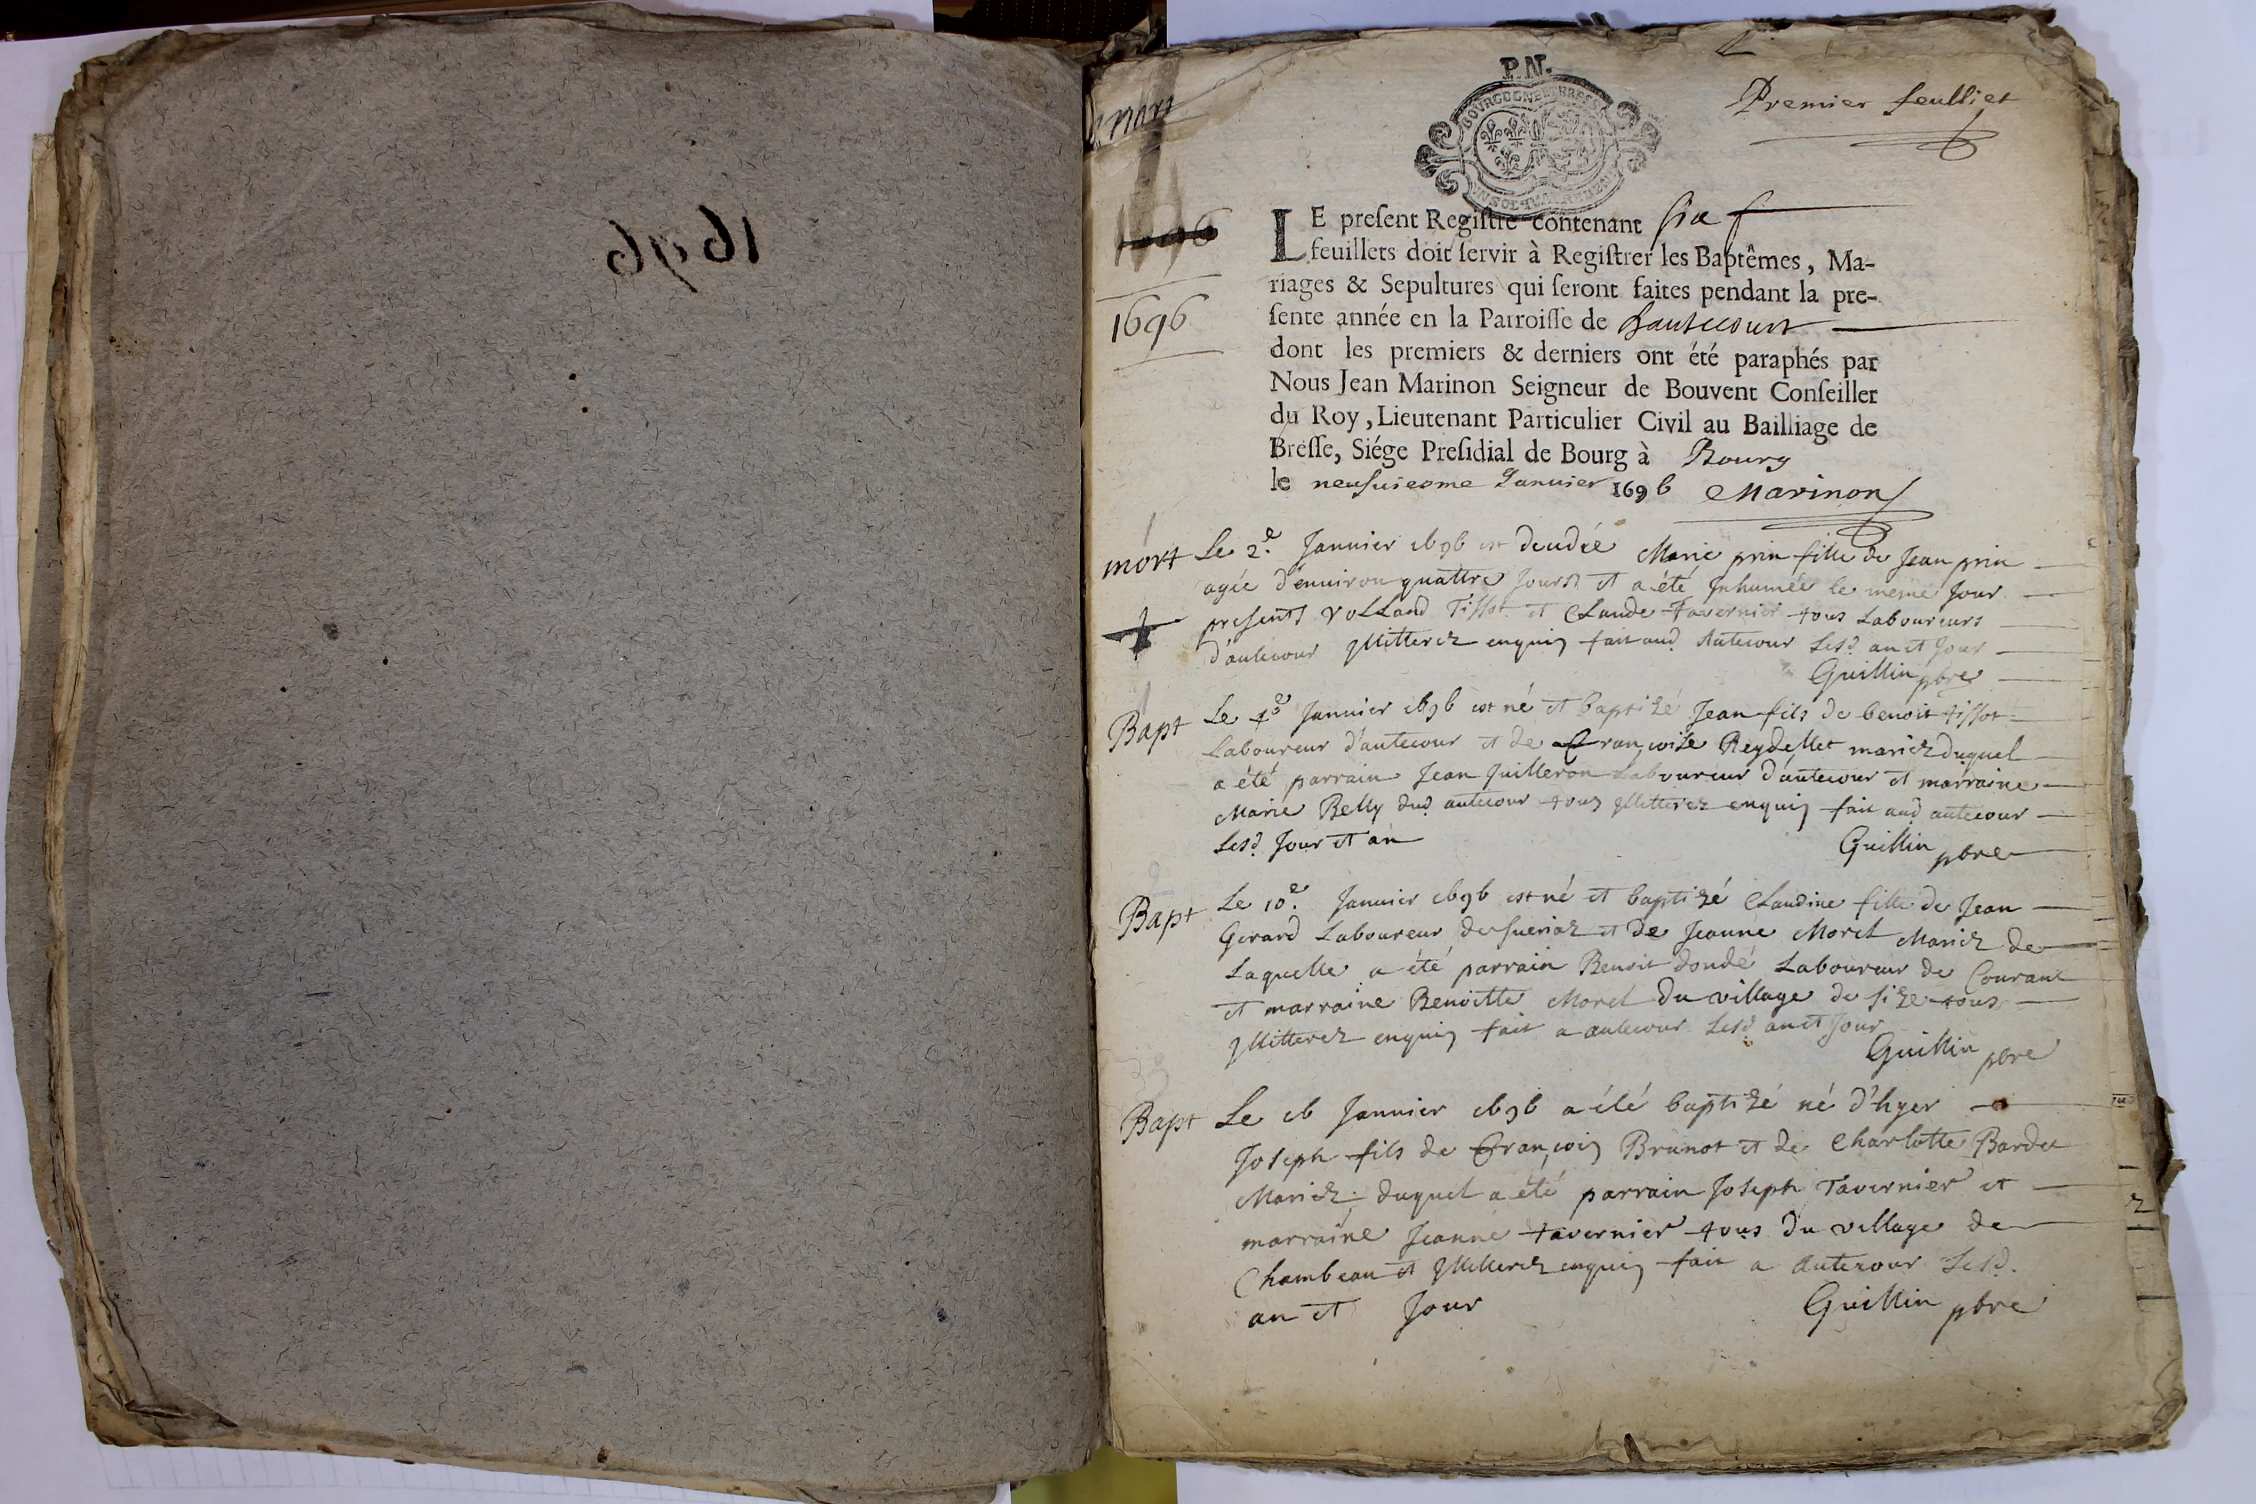 1696
mort
P.N.
BOVRGOGNE ET BRESSE
Premier feulliet
1696
1696
LE preſent Regiſtre contenant six
feuillets doit ſervir à Regiſtrer les Baptêmes, Ma-
riages & Sepultures qui ſeront faites pendant la pre-
ſente année en la Parroiſſe de hautecourt
dont les premiers & derniers ont été paraphés par
Nous Jean Marinon Seigneur de Bouvent Conſeiller
du Roy, Lieutenant Particulier Civil au Bailliage de
Breſſe, Siége Preſidial de Bourg à Bourg
le neufuiesme Januier 1696 Marinon
mort Le 2.e Januier 1696 est decedée Marie prin fille de Jean prin
agée d'enuiron quattre Jours et a été Inhumée le méme Jour
presents Volland Tissot et Claude Tavernier tous Laboureurs
d'autecour Illitterez enquis fait aud. Autecour Lesd. an et Jour
Guillin pbre
Bapt Le 4e Januier 1696 est né et baptizé Jean fils de benoit tissot
Laboureur d'autecour et de Françoise Reydellet mariez duquel
a été parrain Jean Juilleron Laboureur d'autecour et marraine
Marie Belly dud. autecour tous Illitterez enquis fait aud autecour
Lesd. Jour et an
Guillin pbre
Bapt Le 10.e Januier 1696 est né et baptizé Claudine fille de Jean
Gerard Laboureur de et de Jeanne Morel Mariez de
Laquelle a été parrain Benoit dondé Laboureur de Courant
et marraine Benoitte Morel du village de size tous
Illitterez enquis fait a autecour Lesd an et Jour
Guillin pbre
Bapt Le 16 Januier 1696 a été baptizé né d'hyer
Joseph fils de François Brunot et de Charlotte Bardet
Mariez. duquel a été parrain Joseph Tavernier et
marraine Jeanne tavernier tous du village de
Chambeau et Illitterez enquis fait a Autecour Lesd.
an et Jour
Guillin pbre